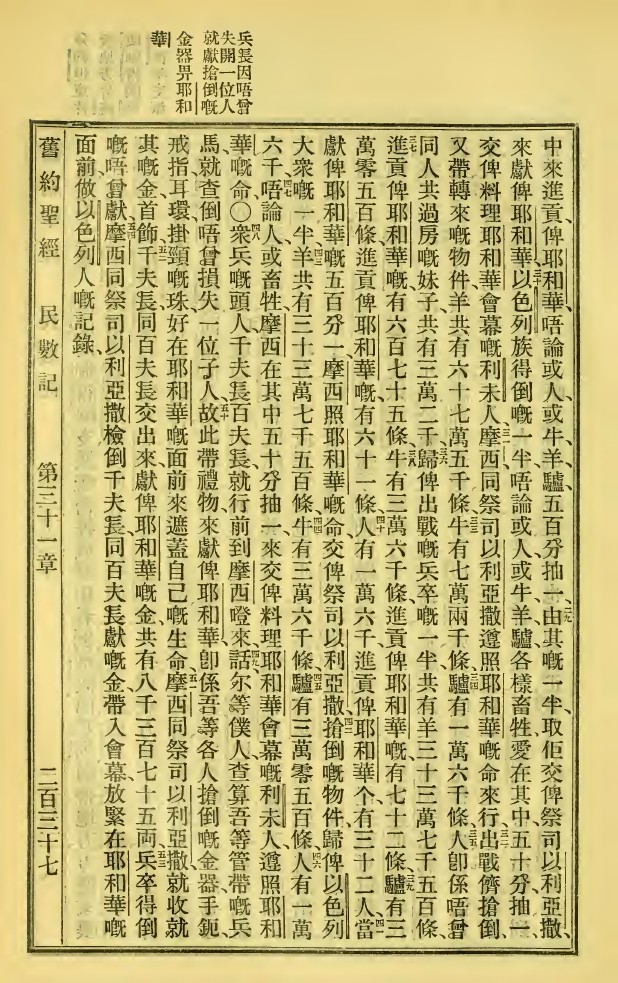 兵長因唔曾
失開一位人
就獻搶倒嘅
金器畀耶和
華
中來進貢俾耶和華、唔論或人、或牛、羊、驢、五百分抽一、二九由其嘅一半、取佢交俾祭司以利亞撒、
來獻俾耶和華、三十以色列族得倒嘅一半、唔論或人或牛、羊、驢、各樣畜牲、愛在其中、五十分抽一、
交俾料理耶和華會幕嘅利未人、三一摩西同祭司以利亞撒遵照耶和華嘅命來行、三二出戰儕搶倒、
又帶轉來嘅物件、羊共有六十七萬五千條、三三牛有七萬兩千條、三四驢有一萬六千條、三五人卽係唔曾
同人共過房嘅妹子、共有三萬二千、三六歸俾出戰嘅兵卒嘅一半、共有羊三十三萬七千五百條、
三七進貢俾耶和華嘅、有六百七十五條、三八牛有三萬六千條、進貢俾耶和華嘅、有七十二條、三九驢有三
萬零五百條、進貢俾耶和華嘅、有六十一條、四十人有一萬六千、進貢俾耶和華个有三十二人、四一當
獻俾耶和華嘅五百分一、摩西照耶和華嘅命、交俾祭司以利亞撒、四二搶倒嘅物件、歸俾以色列
大衆嘅一半、四三羊共有三十三萬七千五百條、四四牛有三萬六千條、四五驢有三萬零五百條、四六人有一萬
六千、四七唔論人或畜牲、摩西在其中五十分抽一、來交俾料理耶和華會幕嘅利未人、遵照耶和
華嘅命〇四八衆兵嘅頭人千夫長百夫長、就行前到摩西嶝來、四九話、尔等僕人查算吾等管帶嘅兵
馬、就查倒唔曾損失一位子人、五十故此帶禮物來獻俾耶和華、卽係吾等各人搶倒嘅金器、手鈪、
戒指、耳環、掛頸嘅珠、好在耶和華嘅面前、來遮蓋自己嘅生命、五一摩西同祭司以利亞撒、就收就
其嘅金首飾、五二千夫長同百夫長交出來獻俾耶和華嘅金、共有八千三百七十五両、五三兵卒得倒
嘅唔曾獻、五四摩西同祭司以利亞撒、檢倒千夫長同百夫長獻嘅金、帶入會幕、放緊在耶和華嘅
面前、做以色列人嘅記錄、
舊約聖經 民數記 第三十一章 二百三十七